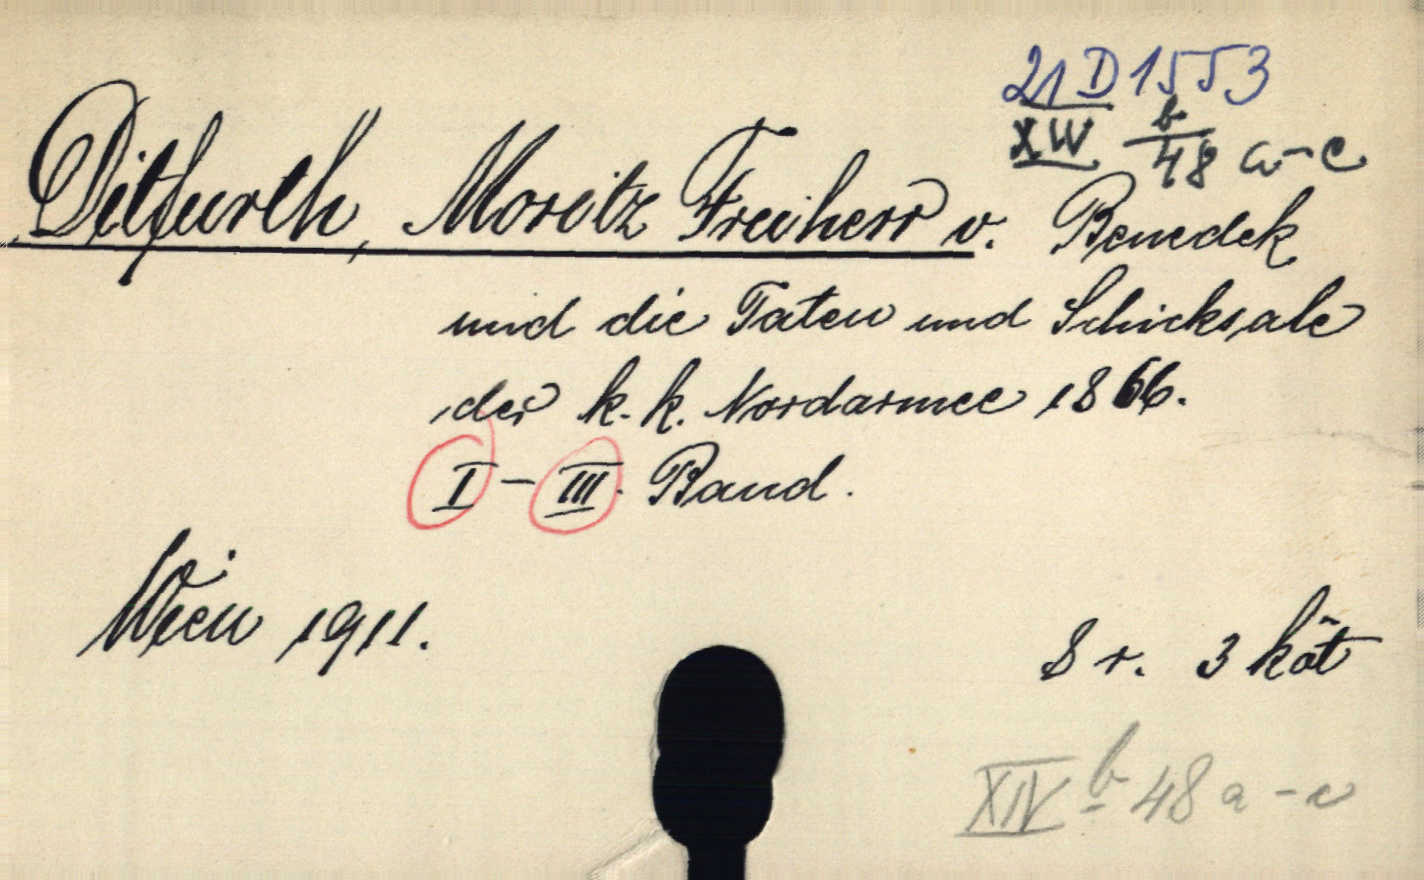 21 D 1553
XIV b/48 a-c
Ditfurth, Moritz Freiherr v. Benedek
und die Taten und Schicksale
der k. k. Nordarmee 1866.
I - III. Band.
Wien 1911.
8 r. 3 köt
XIV b 48 a-c